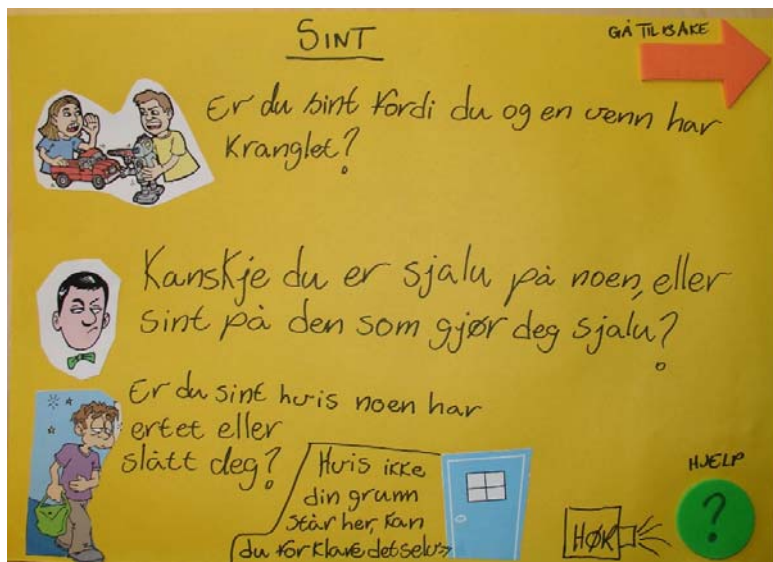 SINT
GÅ TILBAKE
Er du sint fordi du og en venn har
kranglet?
Kanskje du er sjalu på noen, eller
sint på den som gjør deg sjalu?
Er du sint hvis noen har
ertet eller
slått deg?
Hvis ikke
din grunn
står her, kan
du forklare det selv
HØR
HJELP
?